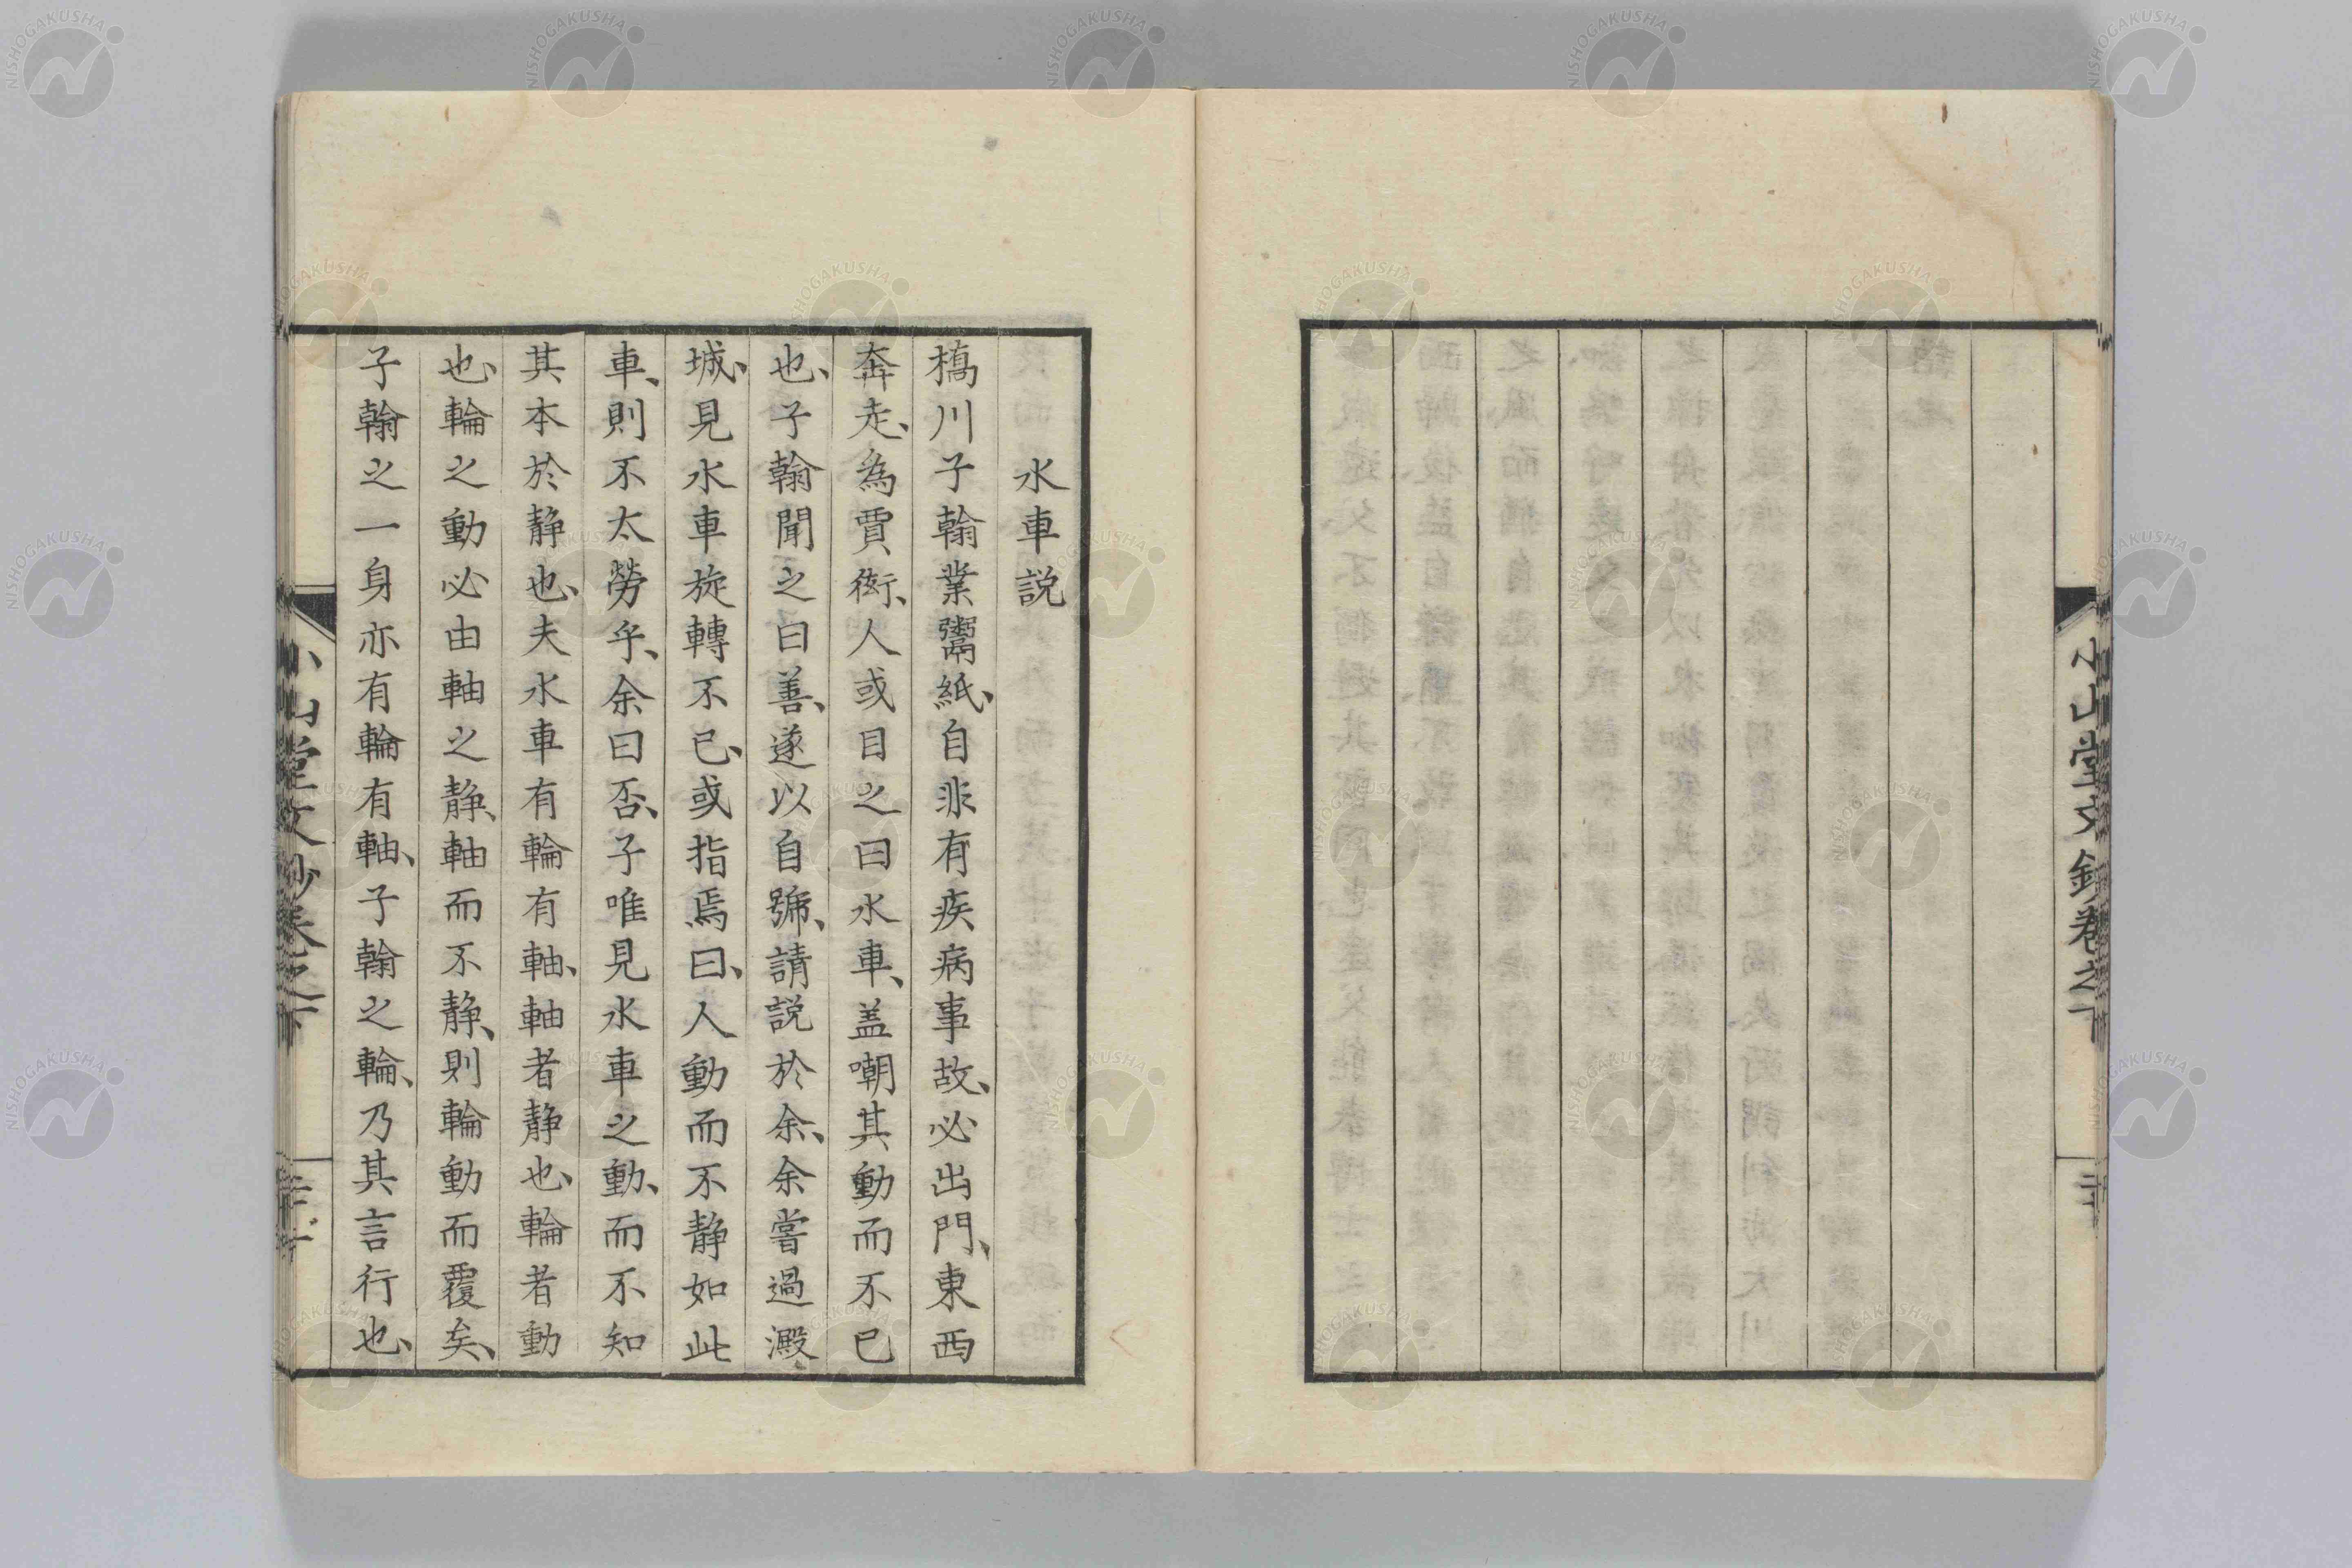 水車説
橋川子翰業鬻紙、自非有疾病事故、必出門、東西
奔走、為賈衒、人或目之曰水車、盖嘲其動而不已
也、子翰聞之曰善、遂以自號、請説於余、余嘗過澱
城、見水車旋轉不已、或指焉曰、人動而不静如此
車、則不太勞乎、余曰否、子唯見水車之動、而不知
其本於静也、夫水車有輪有軸、軸者静也、輪者動
也、輪之動必由軸之静、軸而不静、則輪動而覆矣、
子翰之一身亦有輪有軸、子翰之輪、乃其言行也、
小山堂文鈔卷之下
NISHOGAKUSHA